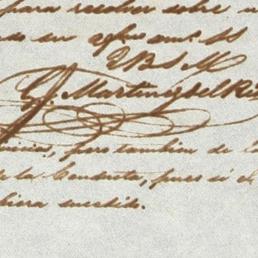 para recibir sobre
de su afmo. SS
QBSM
J. Martinez del Rio
pero tambien de
de la Conducta, pues si el
biera sucedido.